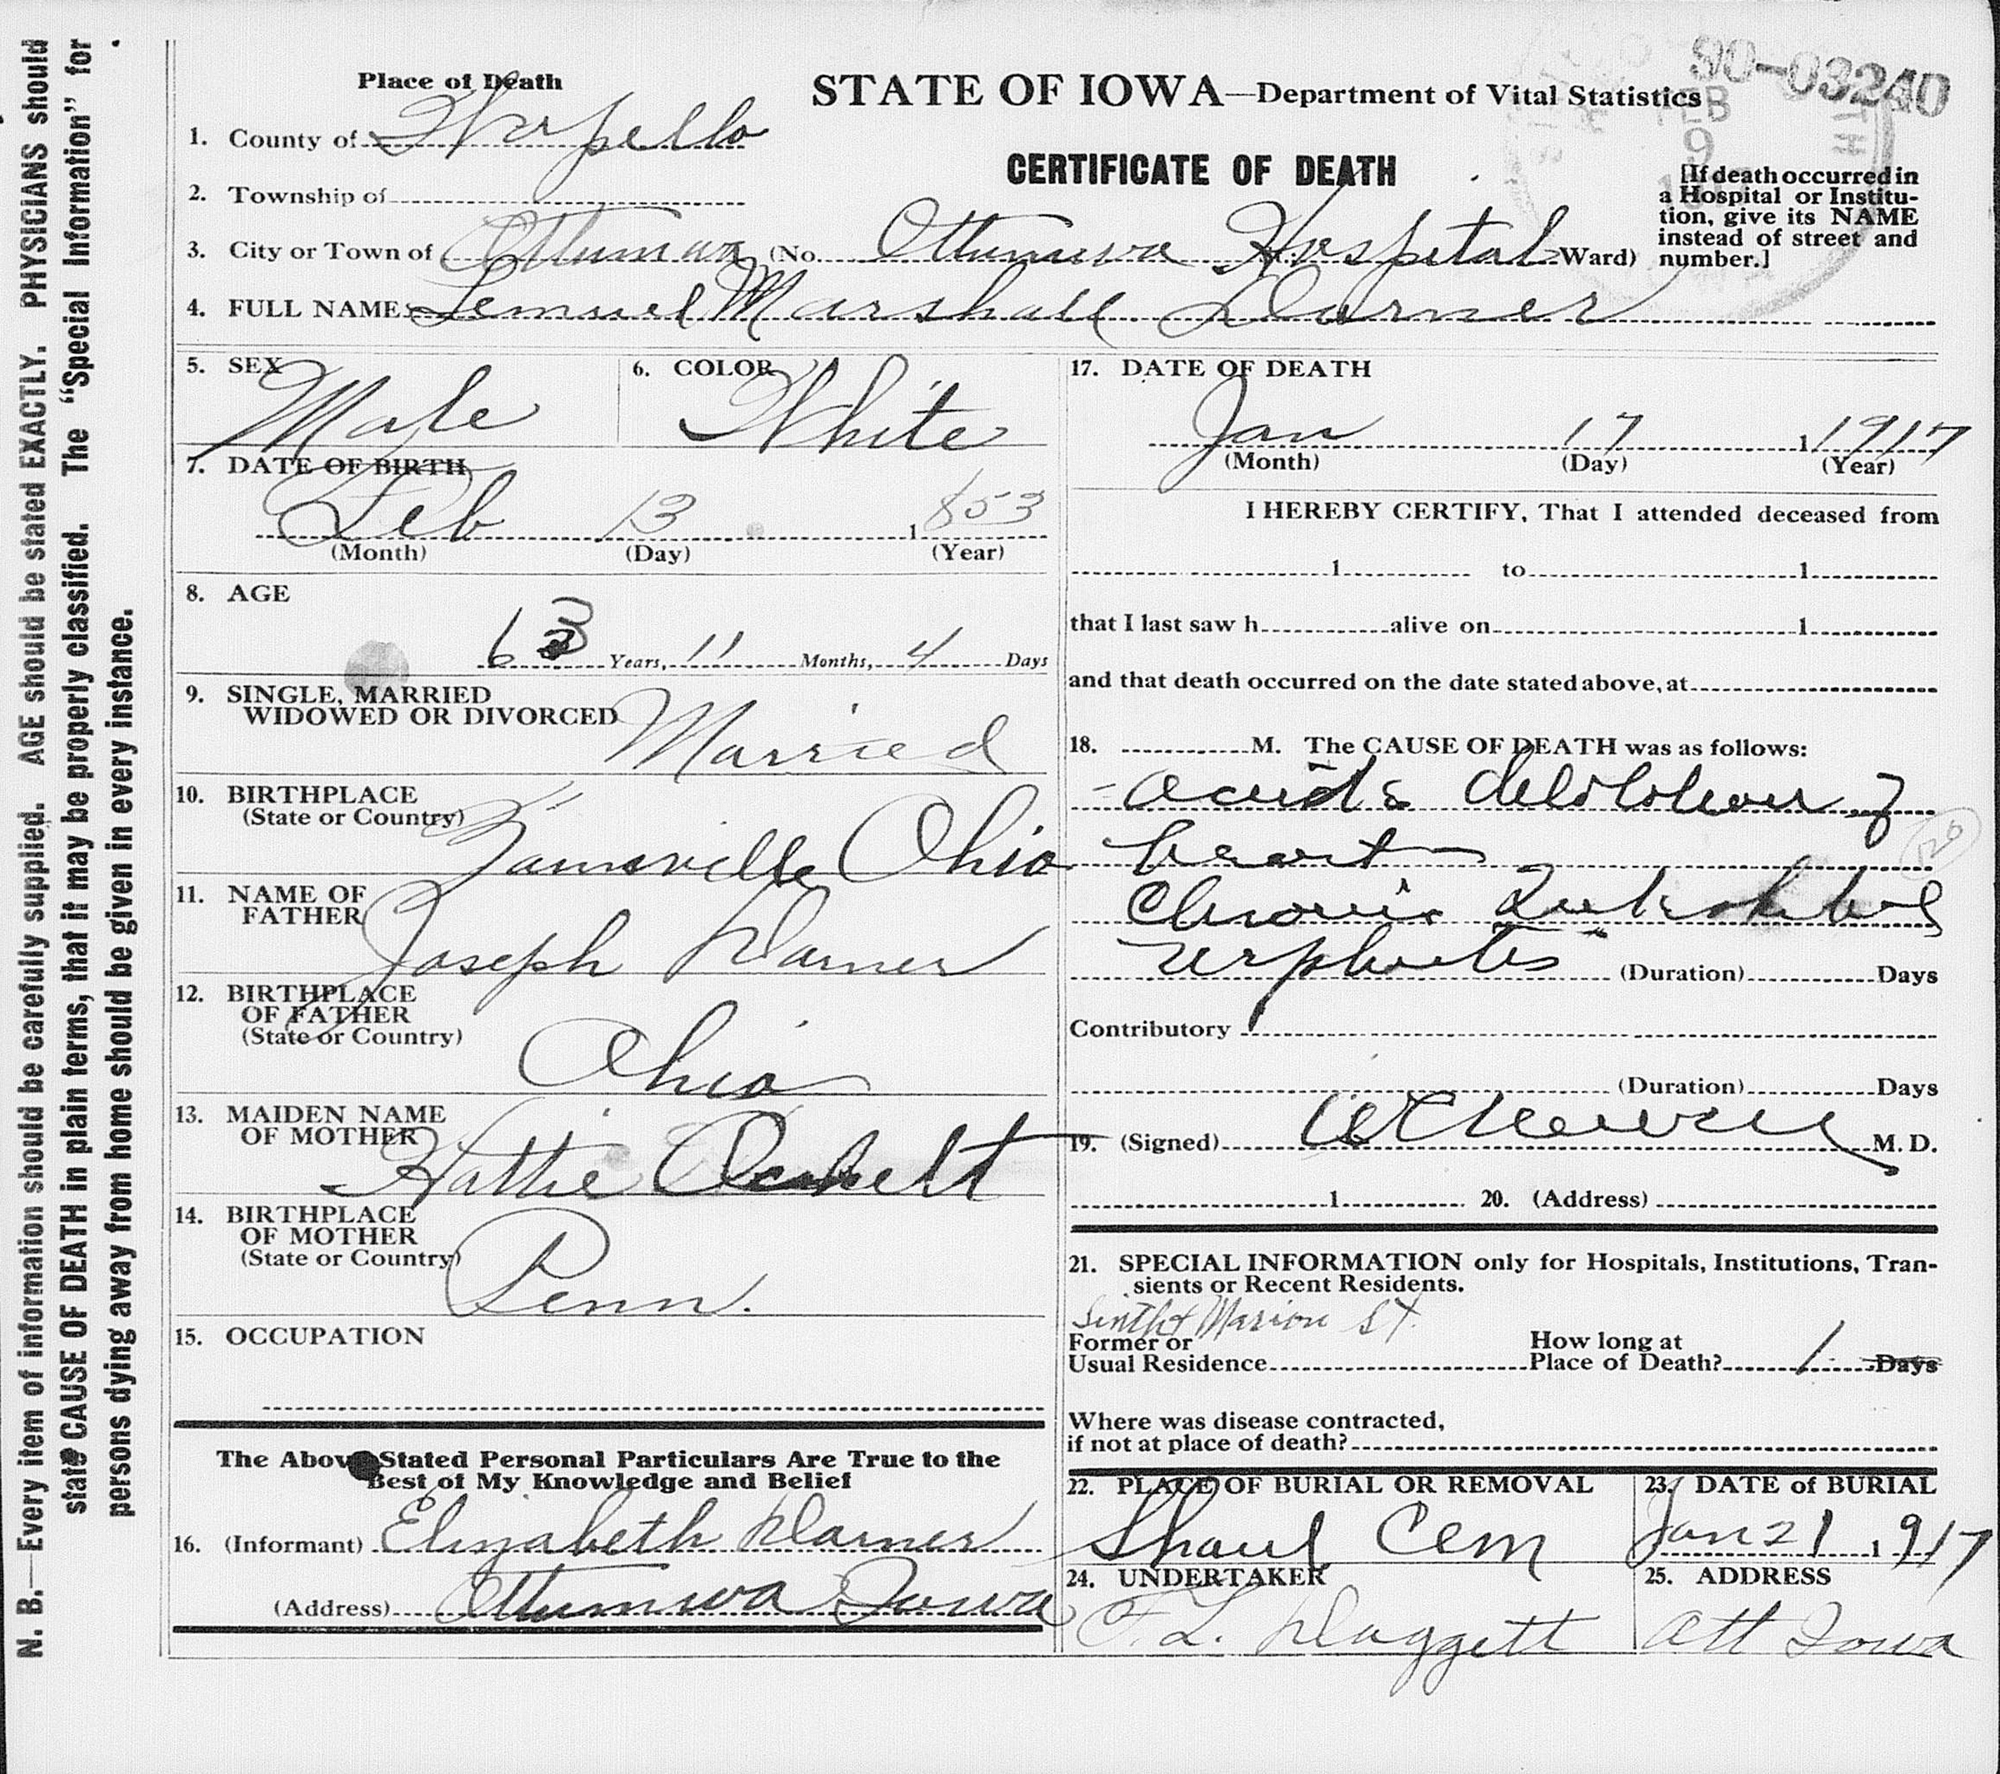 N. B.—Every item of information should be carefully supplied. AGE should be stated EXACTLY. PHYSICIANS should
state CAUSE OF DEATH in plain terms, that it may be properly classified. The "Special Information" for
persons dying away from home should be given in every instance.
90-03240
FEB
9
Place of Death
STATE OF IOWA—Department of Vital Statistics
1. County of Wapello
CERTIFICATE OF DEATH
[If death occurred in
a Hospital or Institu-
tion, give its NAME
instead of street and
number.]
2. Township of
3. City or Town of Ottumwa (No. Ottumwa Hospital Ward)
4. FULL NAME Lemuel Marshall Darner
5. SEX
Male
6. COLOR
White
7. DATE OF BIRTH
Feb 13 1853
(Month) (Day) (Year)
8. AGE
63 Years, 11 Months, 4 Days
9. SINGLE, MARRIED
WIDOWED OR DIVORCED
Married
10. BIRTHPLACE
(State or Country)
Zanesville Ohio
11. NAME OF
FATHER
Joseph Darner
12. BIRTHPLACE
OF FATHER
(State or Country)
Ohio
13. MAIDEN NAME
OF MOTHER
Hattie
14. BIRTHPLACE
OF MOTHER
(State or Country)
Penn.
15. OCCUPATION
The Above Stated Personal Particulars Are True to the
Best of My Knowledge and Belief
16. (Informant) Elizabeth Darner
(Address) Ottumwa Iowa
17. DATE OF DEATH
Jan 17 1 1917
(Month) (Day) (Year)
I HEREBY CERTIFY, That I attended deceased from
1 to 1
that I last saw h alive on 1
and that death occurred on the date stated above, at
18. M. The CAUSE OF DEATH was as follows:
acute dilatation of
heart
Chronic Interstitial
nephritis (Duration) Days
Contributory
(Duration) Days
19. (Signed) M. D.
1 20. (Address)
21. SPECIAL INFORMATION only for Hospitals, Institutions, Tran-
sients or Recent Residents.
Marion St.
Former or
Usual Residence
How long at
Place of Death? 1 Days
Where was disease contracted,
if not at place of death?
22. PLACE OF BURIAL OR REMOVAL
Shaul Cem
23. DATE of BURIAL
Jan 21, 1917
24. UNDERTAKER
F. L. Daggett
25. ADDRESS
Ott Iowa